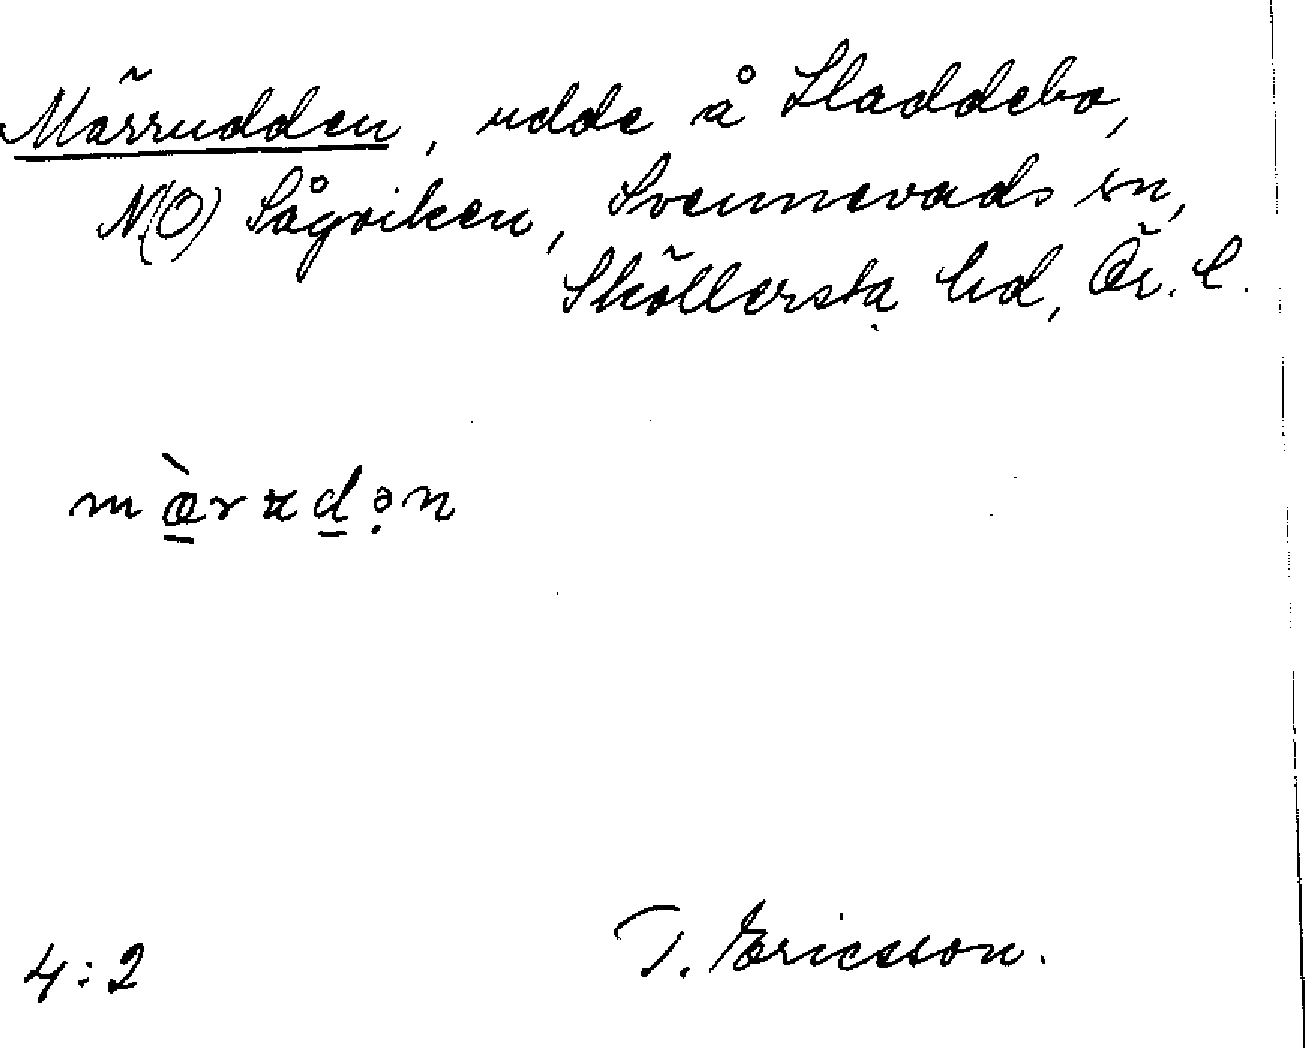 Märrudden, udde å Sladdebo,
N(O) Sågviken, Svennevads sn,
Sköllersta hd, Ör. l.
mæ̀rudən
4:2 T. Ericsson.